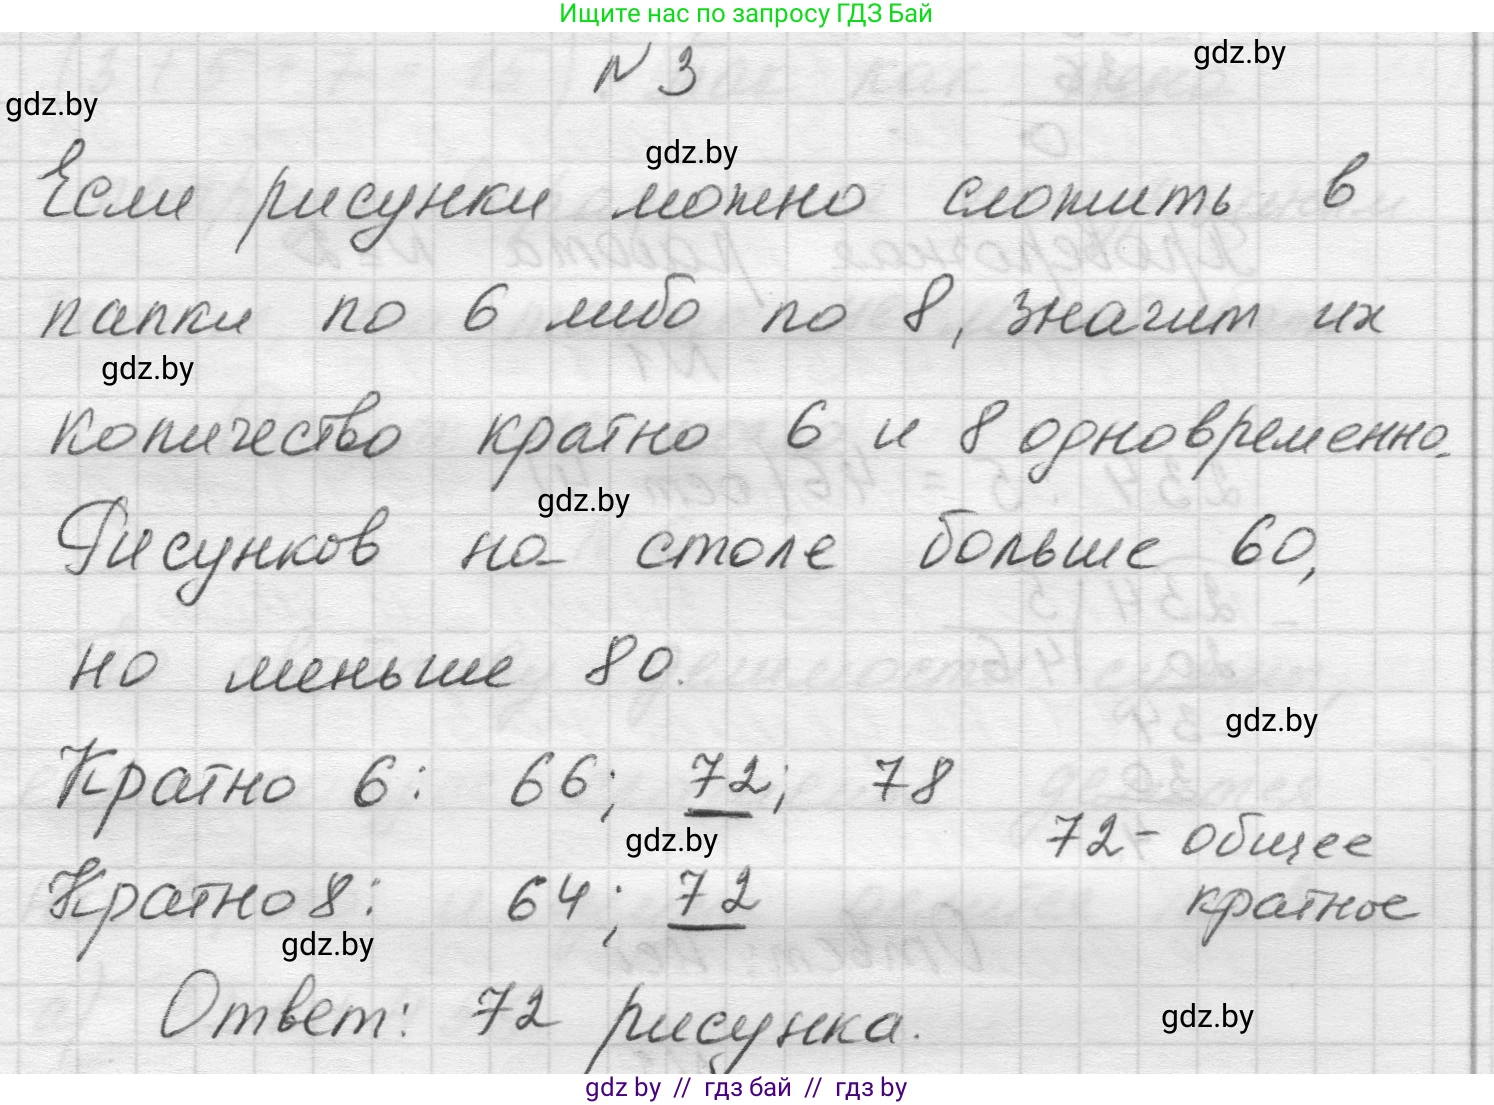 Ищите нас по запросу ГДЗ Бай
gdz.by
N 3
gdz.by
gdz.by
Если рисунки можно сложить в
папки по 6 либо по 8, значит их
gdz.by
количество кратно 6 и 8 одновременно.
gdz.by
Рисунков на столе больше 60,
но меньше 80.
gdz.by
Кратно 6: 66; 72; 78
gdz.by
72 - общее
кратное
Кратно 8: 64; 72
gdz.by
Ответ: 72 рисунка.
gdz.by
gdz by // гдз бай // гдз by